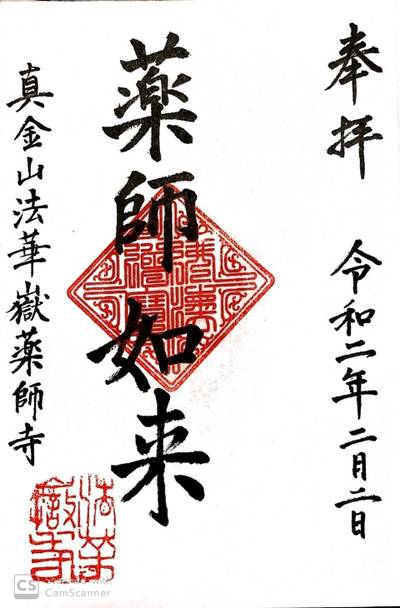 奉拝　令和二年二月二日
薬師如来
真金山法華嶽薬師寺
CS Scanned with
CamScanner